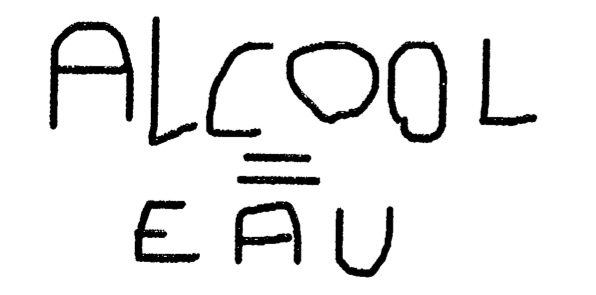 ALCOOL
=
EAU